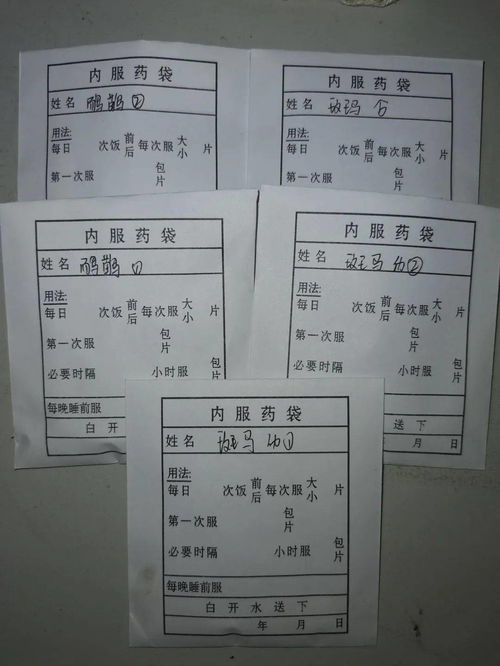 内服药袋
姓名 鸸鹋②
用法:
每日 次饭前后每次服大小 片
第一次服 包片
内服药袋
姓名 斑玛
用法:
每日 次饭前后每次服大小 片
第一次服 包片
内服药袋
姓名 鸸鹋①
用法:
每日 次饭前后每次服大小 片
第一次服 包片
必要时隔 小时服 包片
每晚睡前服
白开水
内服药袋
姓名 斑马 幼②
用法:
每日 次饭前后每次服大小 片
第一次服 包片
必要时隔 小时服 包片
送下
月 日
内服药袋
姓名 斑马 幼①
用法:
每日 次饭前后每次服大小 片
第一次服 包片
必要时隔 小时服 包片
每晚睡前服
白开水送下
年 月 日